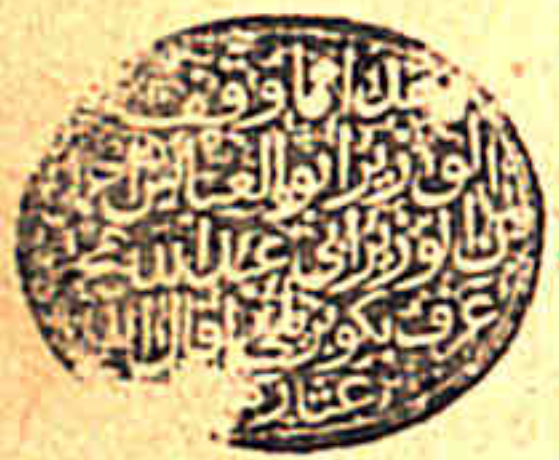 مما وقف
الوزير ابو العباس احمد
بن الوزير ابي عبد الله محمد
عرف بكوبريلي اقال الله
عثار